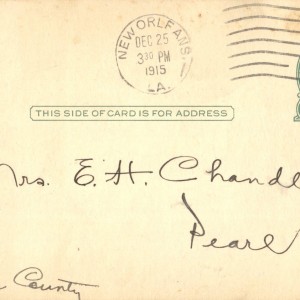 NEW ORLEANS,
DEC 25
3 30 PM
1915
LA.
THIS SIDE OF CARD IS FOR ADDRESS
Mrs. E. H. Chandl
Pearl
County